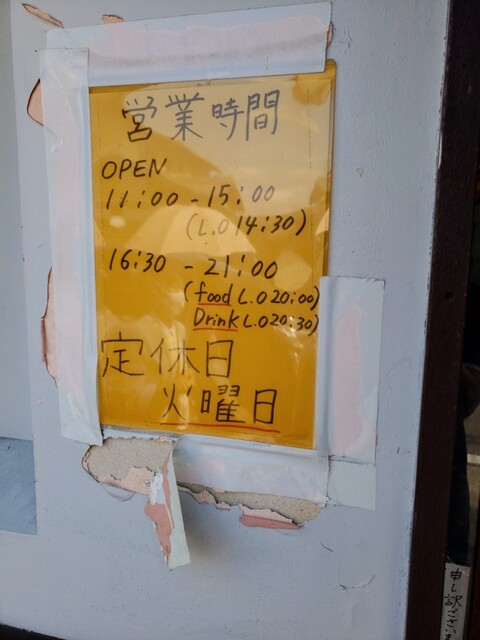 営業時間
OPEN
11:00 - 15:00
(L.O 14:30)
16:30 - 21:00
(food L.O 20:00)
Drink L.O 20:30)
定休日
火曜日
申し訳ござい